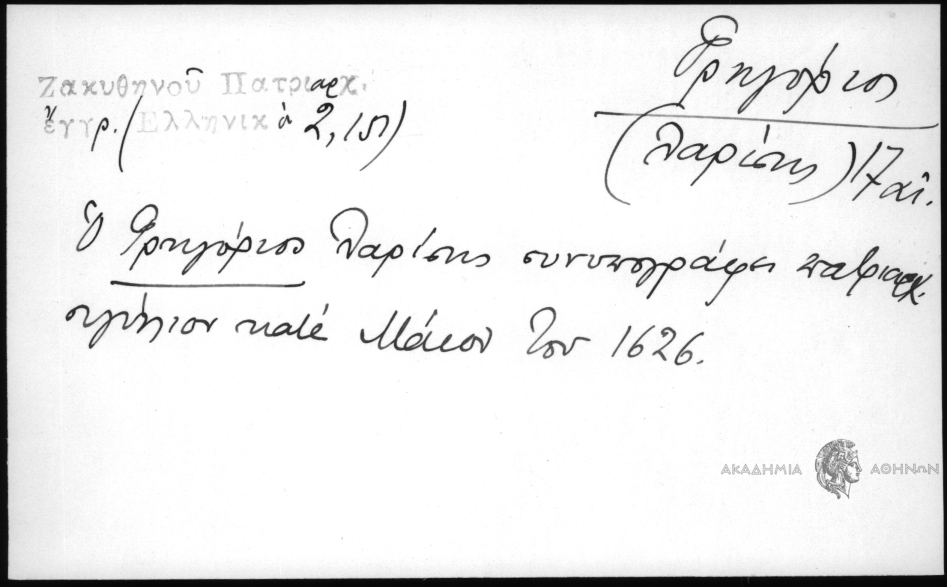 Ζακυθηνοῦ Πατριαρχ.
ἔγγρ. (Ἑλληνικὰ 2, 151)
Γρηγόριος
(Λαρίσης) 17 αἰ.
Ὁ Γρηγόριος Λαρίσης συνυπογράφει πατριαρχ.
σιγίλλιον κατὰ Μάϊον τοῦ 1626.
ΑΚΑΔΗΜΙΑ ΑΘΗΝΩΝ